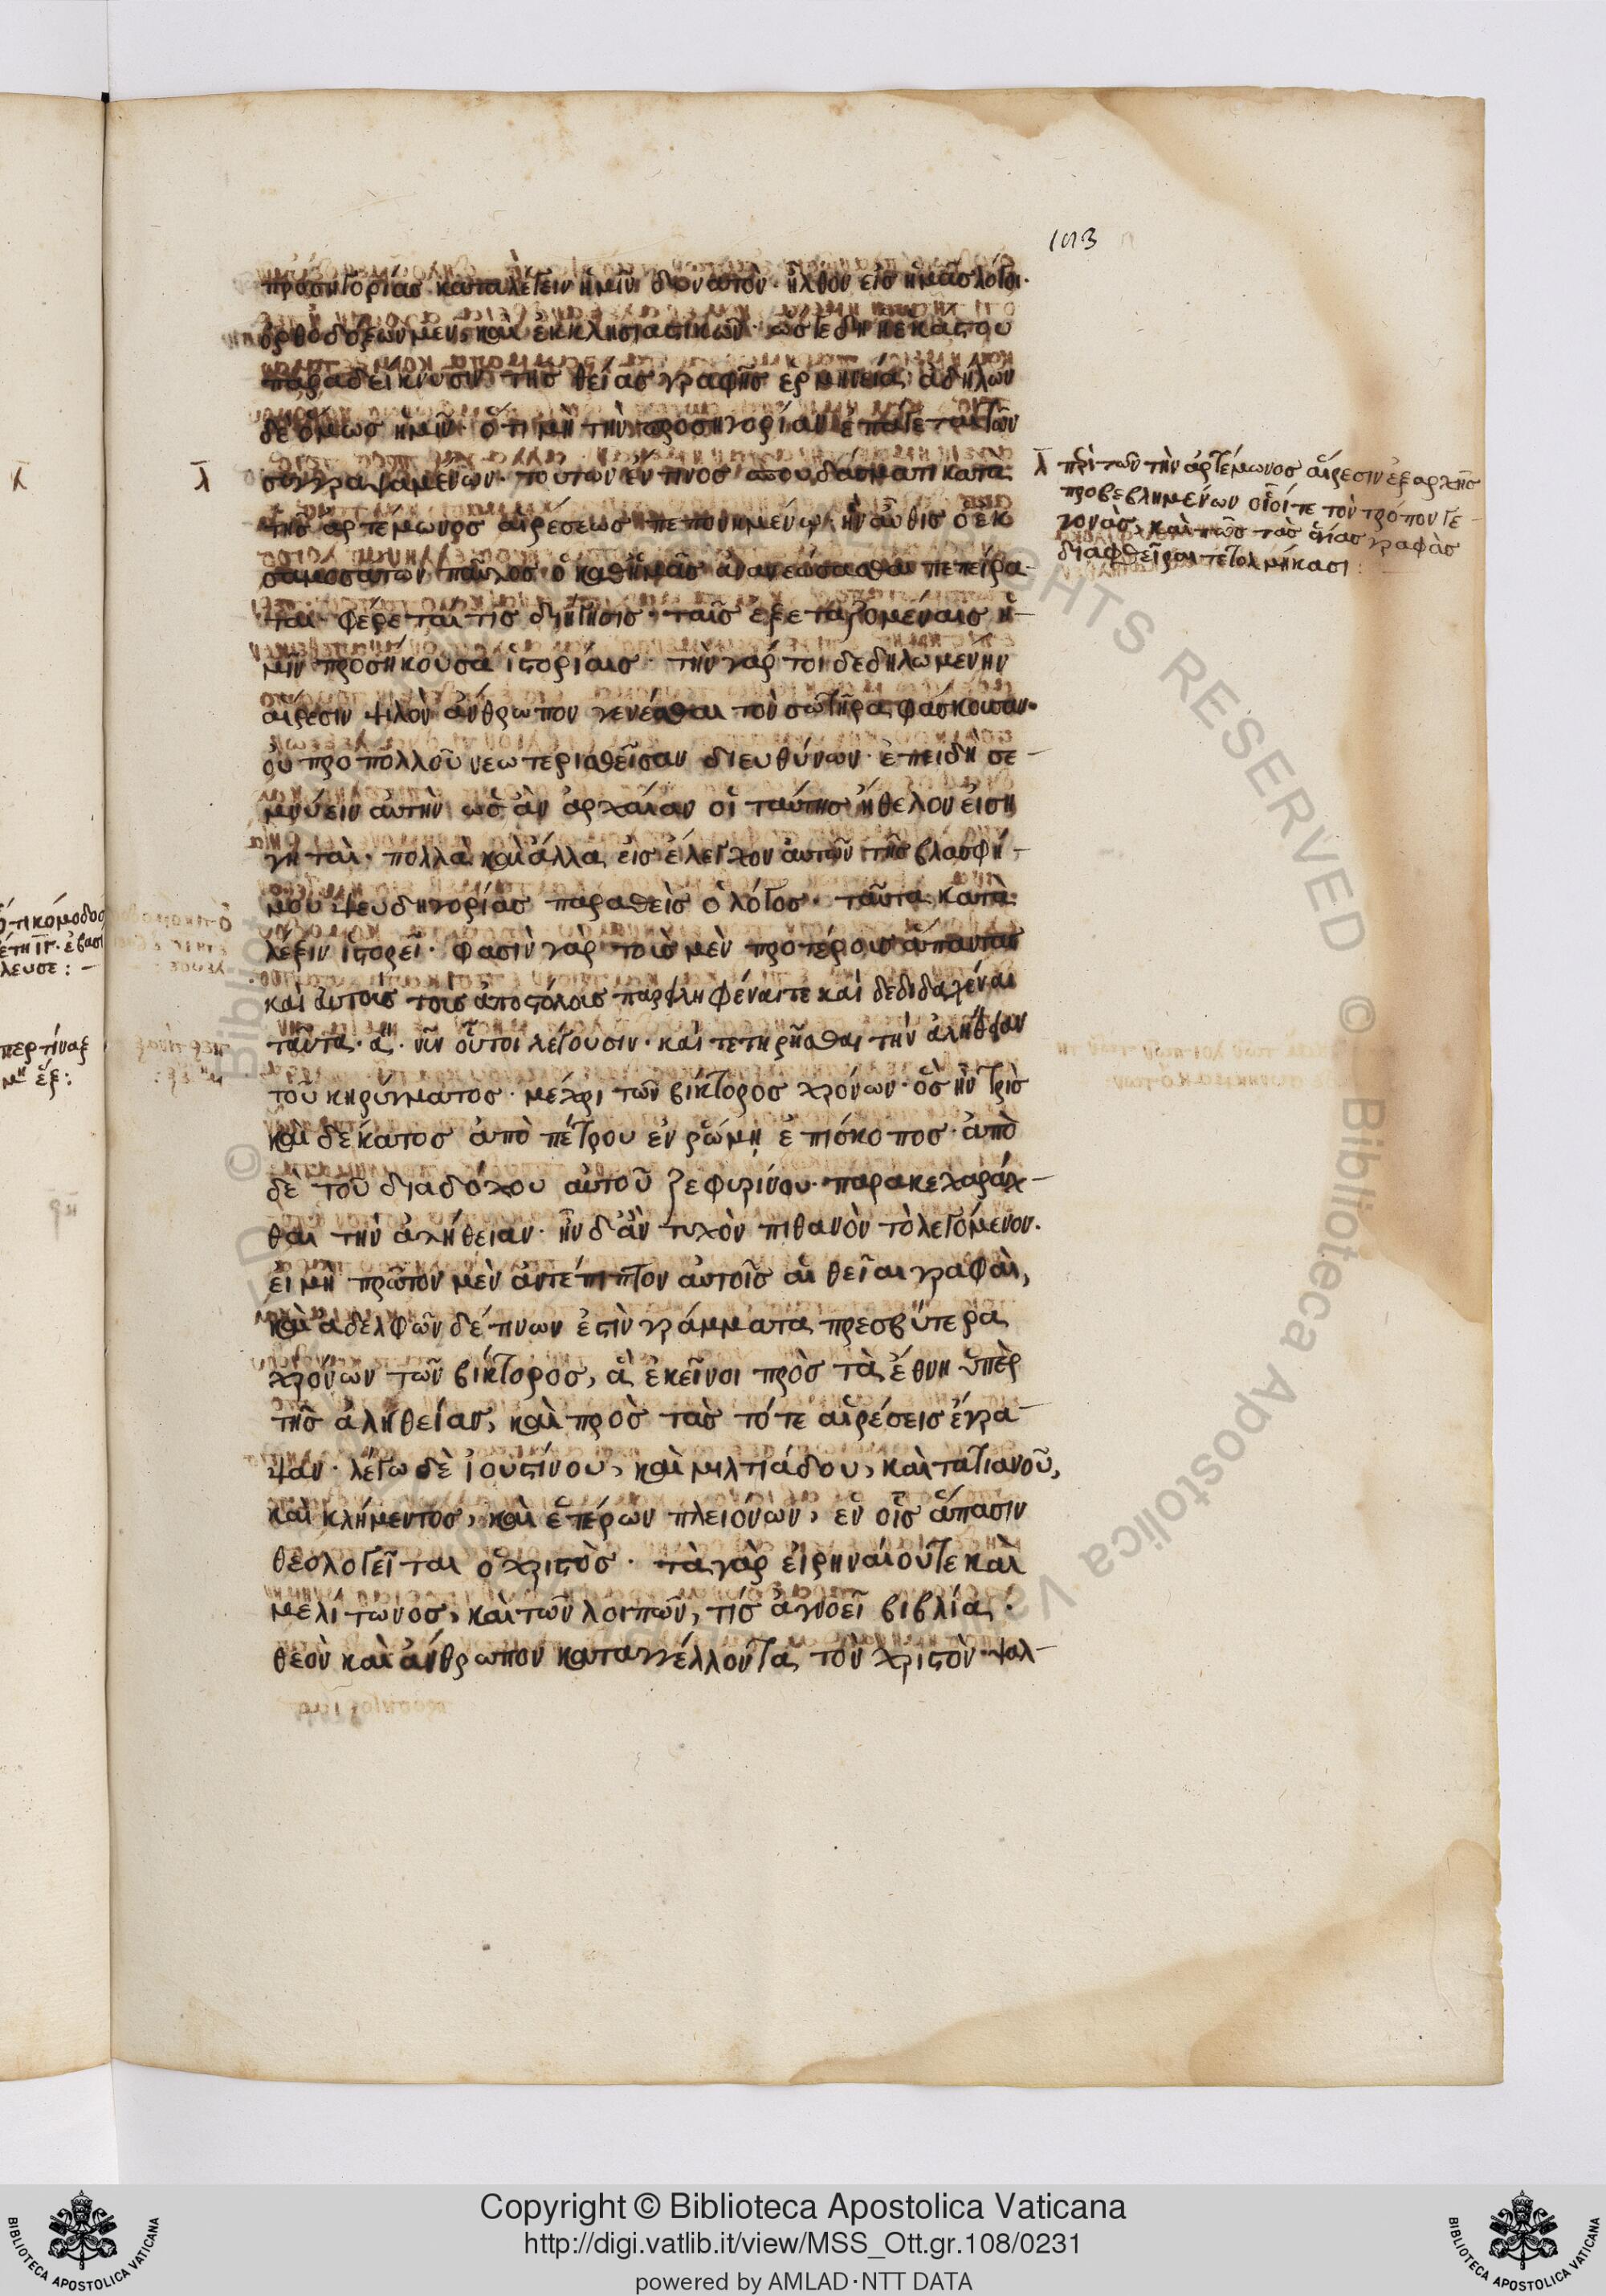 103
προσηγορίας καταλέγειν ἡμῖν δυνατὸν· ἦλθον εἰς ἡμᾶς λόγοι·
ὀρθοδόξων μὲν, καὶ ἐκκλησιαστικῶν· ὥς γε δὴ ἡ ἑκάστου
παραδείκνυσιν τῆς θείας γραφῆς ἑρμηνεία, ἀδήλων
δὲ ὅμως ἡμῖν· ὅτι μὴ τὴν προσηγορίαν ἐπάγεται τῶν
συγγραψαμένων· τούτων ἔν τινος σπουδάσματι κατὰ
τῆς ἀρτέμωνος αἱρέσεως πεπονημένω· ἣν αὖθις ὁ ἐκ
σαμοσάτων παῦλος ὁ καθ' ἡμᾶς ἀνανεώσασθαι πεπείρα-
ται· φέρεται τις διήγησις· ταῖς ἐξεταζομέναις ἡ-
μῖν προσήκουσα ἱστορίαις· τὴν γάρ τοι δεδηλωμένην
αἵρεσιν ψιλὸν ἄνθρωπον γενέσθαι τὸν σωτῆρα φάσκουσαν·
οὐ πρὸ πολλοῦ νεωτερισθεῖσαν διευθύνων· ἐπειδὴ σε-
μνύειν αὐτὴν ὡς ἂν ἀρχαίαν οἱ ταύτης ἤθελον εἰση
γηταὶ· πολλὰ καὶ ἄλλα εἰς ἔλεγχον αὐτῶν τῆς βλασφή-
μου ψευδηγορίας παραθεὶς ὁ λόγος· ταῦτα κατὰ
λέξιν ἱστορεῖ· φασὶν γὰρ τοὺς μὲν προτέρους ἅπαντας
καὶ αὐτοὺς τοὺς ἀποστόλους παρειληφέναι τε καὶ δεδιδαχέναι
ταῦτα· ἃ· νῦν οὗτοι λέγουσιν· καὶ τετηρῆσθαι τὴν ἀλήθειαν
τοῦ κηρύγματος· μέχρι τῶν βίκτορος χρόνων· ὃς ἦν τρὶς
καὶ δέκατος ἀπὸ πέτρου ἐν ῥώμῃ ἐπίσκοπος· ἀπὸ
δὲ τοῦ διαδόχου αὐτοῦ ζεφυρίνου· παρακεχαράχ-
θαι τὴν ἀλήθειαν· ἦν δ' ἂν τυχὸν πιθανὸν τὸ λεγόμενον·
εἰ μὴ πρῶτον μὲν ἀντέπιπτον αὐτοῖς αἱ θεῖαι γραφαὶ,
καὶ ἀδελφῶν δέ τινων ἐστὶν γράμματα πρεσβύτερα
χρόνων τῶν βίκτορος, ἃ ἐκεῖνοι πρὸς τὰ ἔθνη ὑπὲρ
τῆς ἀληθείας, καὶ πρὸς τὰς τότε αἱρέσεις ἔγρα-
ψαν· λέγω δὲ ἰουστίνου, καὶ μιλτιάδου, καὶ τατιανοῦ,
καὶ κλήμεντος, καὶ ἑτέρων πλειόνων, ἐν οἷς ἅπασιν
θεολογεῖται ὁ χριστὸς· τὰ γὰρ εἰρηναίου τε καὶ
μελίτωνος, καὶ τῶν λοιπῶν, τίς ἀγνοεῖ βιβλία·
θεὸν καὶ ἄνθρωπον καταγγέλλοντα τὸν χριστὸν· ψαλ-
λ̅
λ̅ περὶ τῶν τὴν ἀρτέμωνος αἵρεσιν ἐξ αρχῆς
προβεβλημένων οἷοί τε τὸν τρόπον γε-
γονὰς, καὶ πῶς τὰς ἁγίας γραφὰς
διαφθεῖραι τετολμήκασι:
ὅτι κόμοδος
ἔτη ιγ· ἐβασι
λευσε: –
περτίναξ
μῆ ἕξ:
Copyright © Biblioteca Apostolica Vaticana
http://digi.vatlib.it/view/MSS_Ott.gr.108/0231
powered by AMLAD·NTT DATA
BIBLIOTECA APOSTOLICA VATICANA
BIBLIOTECA APOSTOLICA VATICANA